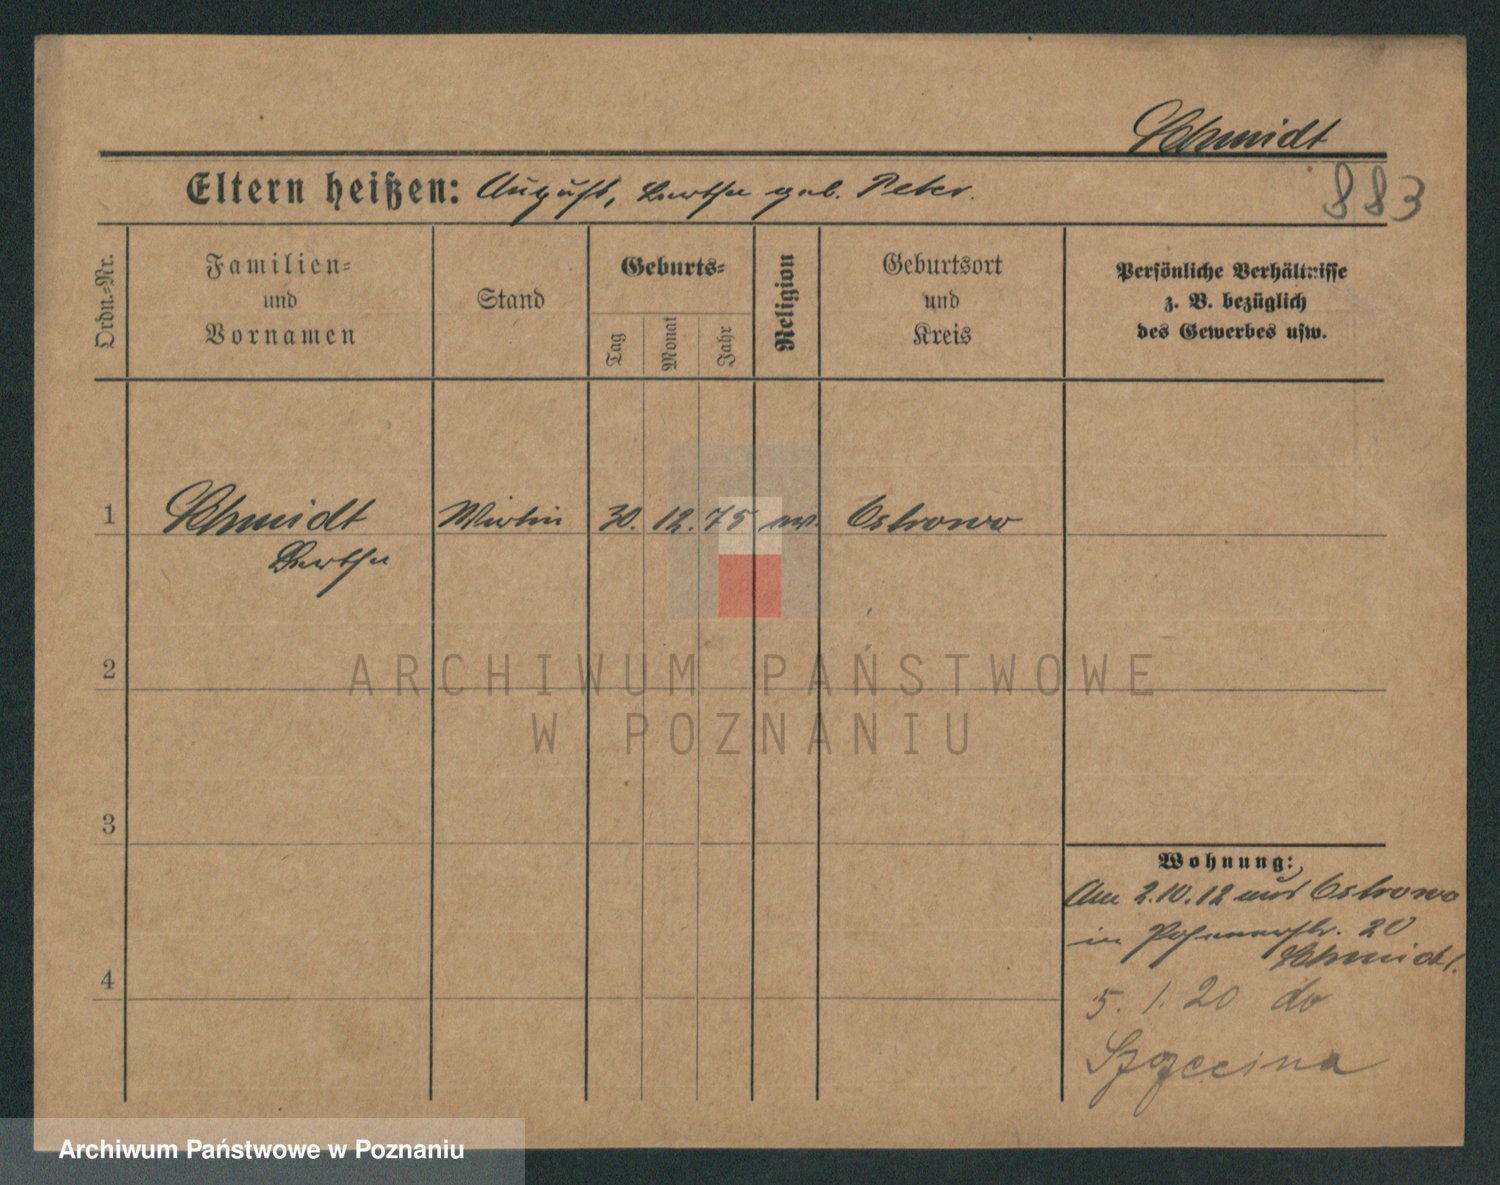 Schmidt
883
Eltern heißen: August, Bertha geb. Peter.
Ordn.-Nr.
Familien-
und
Vornamen
Stand
Geburts-
Tag
Monat
Jahr
Religion
Geburtsort
und
Kreis
Persönliche Verhältnisse
z. B. bezüglich
des Gewerbes usw.
1 Schmidt Wirtin 30. 12. 75 ev. Ostrowo
Bertha
2
ARCHIWUM PAŃSTWOWE
W POZNANIU
3
Wohnung:
Am 2.10.12 aus Ostrowo
in Posenerstr. 20
Schmidt.
4
5. 1. 20 do
Szczecina
Archiwum Państwowe w Poznaniu